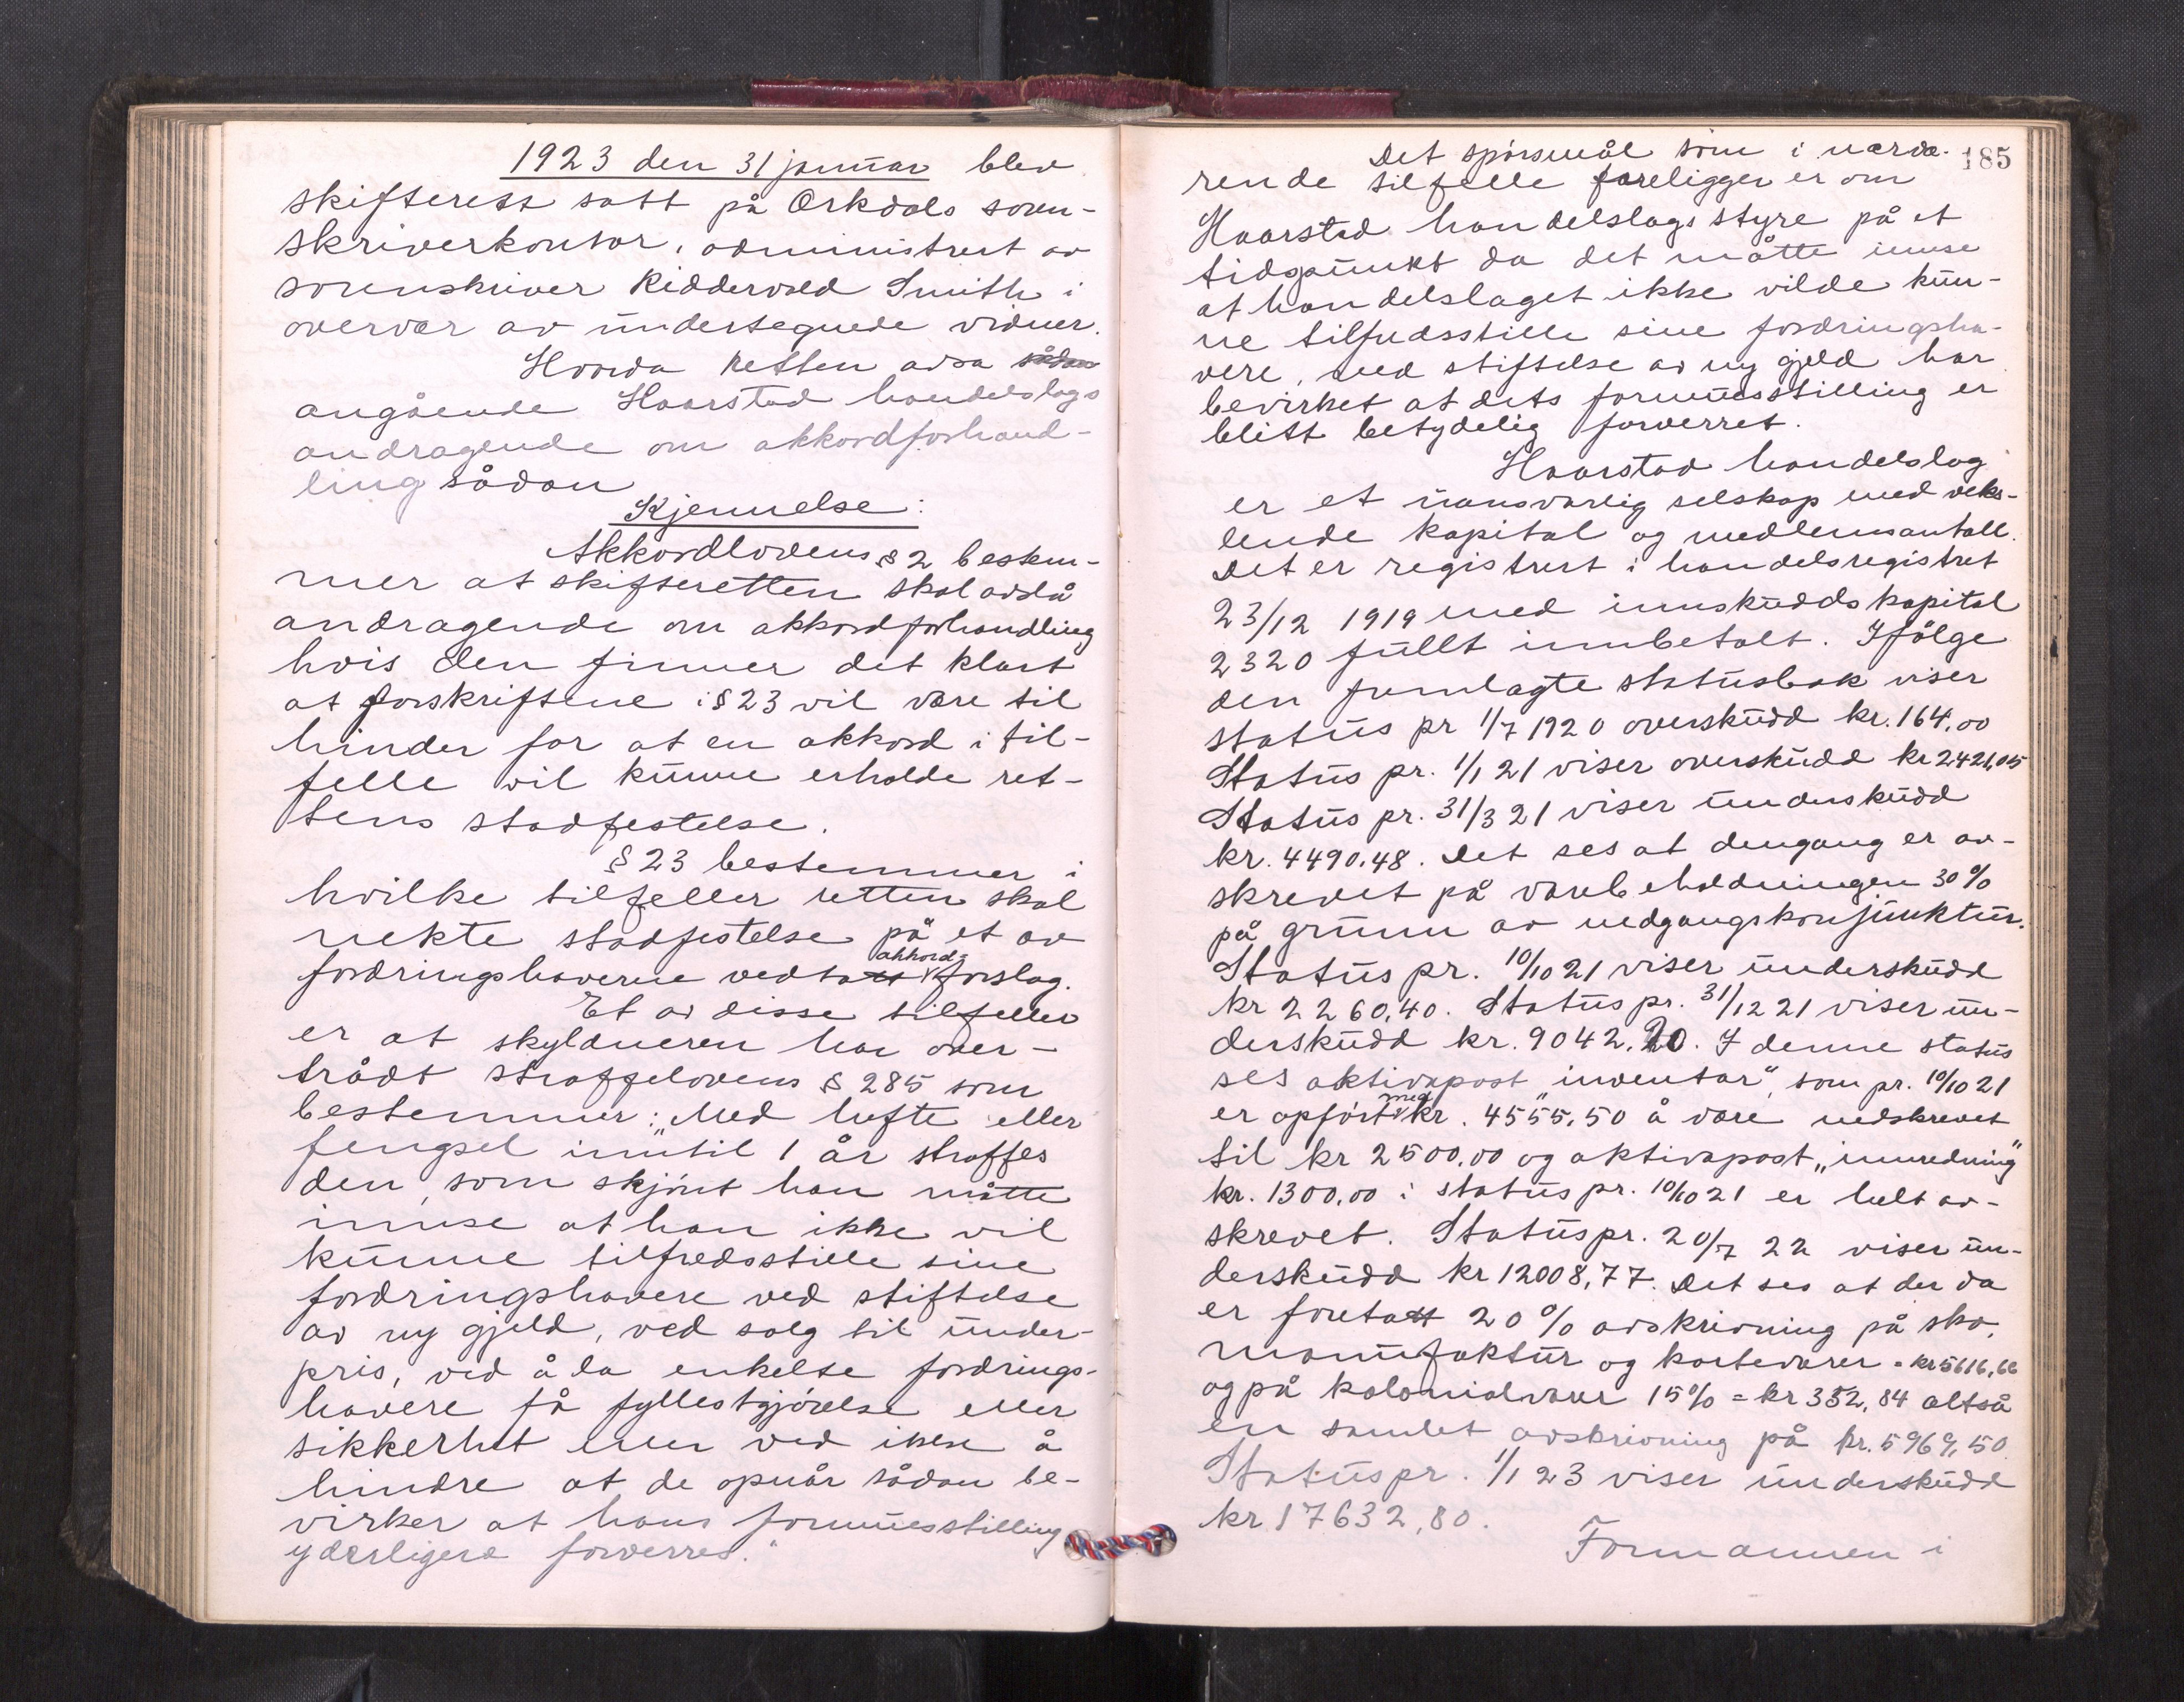 1923 den 31 januar blev
skifterett satt på Orkdals soren-
skriverkontor, administrert av
sorenskriver Riddervold Smith i
overvær av undertegnede vidner.
Hvorda Retten avsa sådan
angående Haarstad handelslags
andragende om akkordforhand-
ling sådan
Kjennelse:
Akkordlovens § 2 bestem-
mer at skifteretten skal avslå
andragende om akkordforhandling
hvis den finner det klart
at forskriftene i § 23 vil være til
hinder for at en akkord i til-
felle vil kunne erholde ret-
tens stadfestelse.
§ 23 bestemmer i
hvilke tilfeller retten skal
nekte stadfestelse på et av
fordringshaverne vedtatt akkord-forslag.
Et av disse tilfeller
er at skyldneren har over-
trådt straffelovens § 285 som
bestemmer: "Med hefte eller
fengsel inntil 1 år straffes
den, som skjønt han måtte
innse at han ikke vil
kunne tilfredsstille sine
fordringshavere ved stiftelse
av ny gjeld, ved salg til under-
pris, ved å la enkelte fordrings-
havere få fyllestgjørelse eller
sikkerhet eller ved ikke å
hindre at de opnår sådan be-
virker at hans formuesstilling
yderligere forverres."
185
Det spørsmål som i nærvæ-
rende tilfelle foreligger er om
Haarstad handelslags styre på et
tidspunkt da det måtte innse
at handelslaget ikke vilde kun-
ne tilfredsstille sine fordringsha-
vere, med stiftelse av ny gjeld har
bevirket at dets formuesstilling er
blitt betydelig forverret.
Haarstad handelslag
er et uansvarlig selskap med veks-
lende kapital og medlemsantall.
Det er registrert i handelsregistret
23/12 1919 med innskuddskapital
2320 fullt innbetalt. Ifølge
den fremlagte statusbok viser
status pr 1/7 1920 overskudd kr. 164,00
Status pr. 1/1 21 viser overskudd kr 2421,05
Status pr. 31/3 21 viser underskudd
kr. 4490.48. Det ses at dengang er av-
skrevet på varebeholdningen 30%
på grunn av nedgangskonjunktur.
Status pr. 10/10 21 viser underskudd
kr 2260,40. Status pr. 31/12 21 viser un-
derskudd kr. 9042,20. I denne status
ses aktivapost "inventar", som pr. 10/10 21
er opført med kr. 4555,50 å være nedskrevet
til kr 2500,00 og aktivapost „innredning"
kr. 1300,00 i status pr. 10/10 21 er helt av-
skrevet. Status pr. 20/7 22 viser un-
derskudd kr 12008,77. Det ses at der da
er foretatt 20% avskrivning på sko,
manufaktur og kortevarer = kr 5616,66
og på kolonialvarer 15% = kr 352,84 altså
en samlet avskrivning på kr. 5969,50
Status pr. 1/1 23 viser underskudd
kr 17632,80.
Formannen i